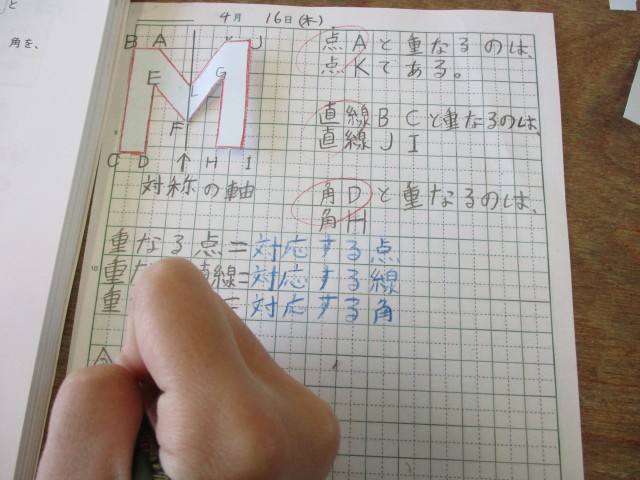 と
角を、
4月 16日(木)
B A K J
E G
L
F
C D ↑ H I
対称の軸
点Aと重なるのは、
点Kである。
直線BCと重なるのは、
直線JI
角Dと重なるのは、
角H
重なる点=対応する点
10
重な 直線=対応する線
重 対応する角